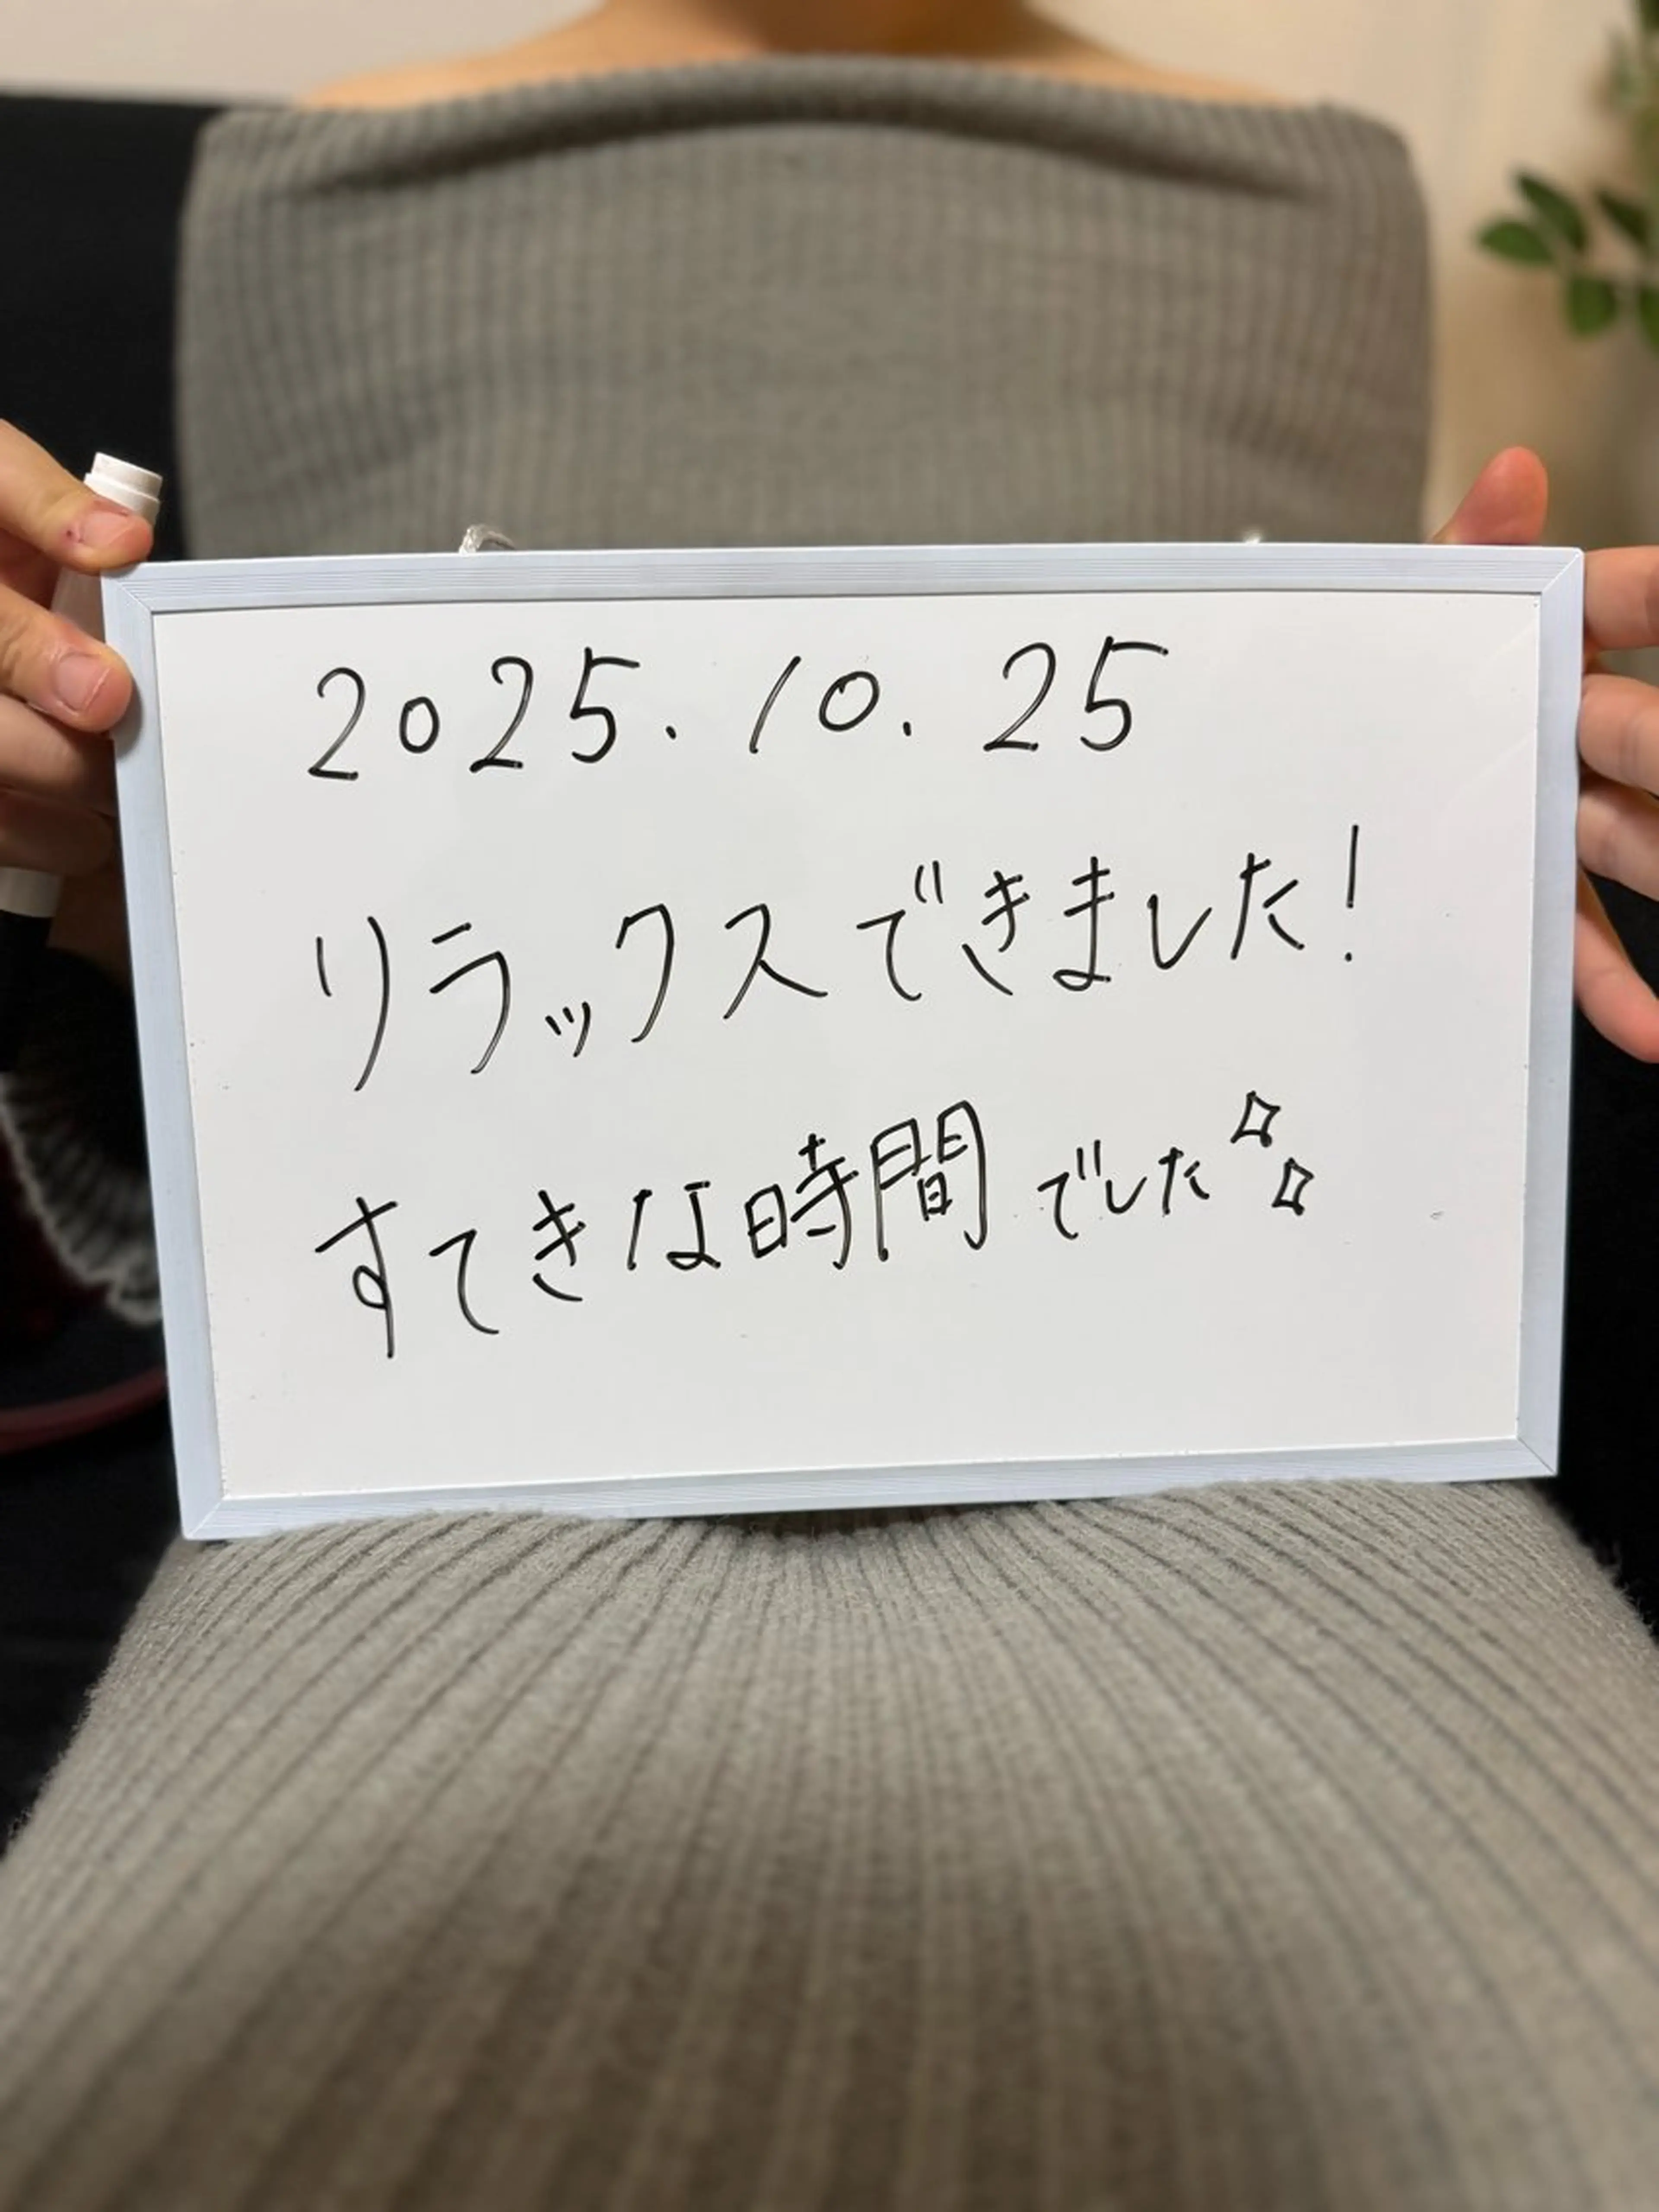 2025.10.25
リラックスできました!
すてきな時間でした✧✧